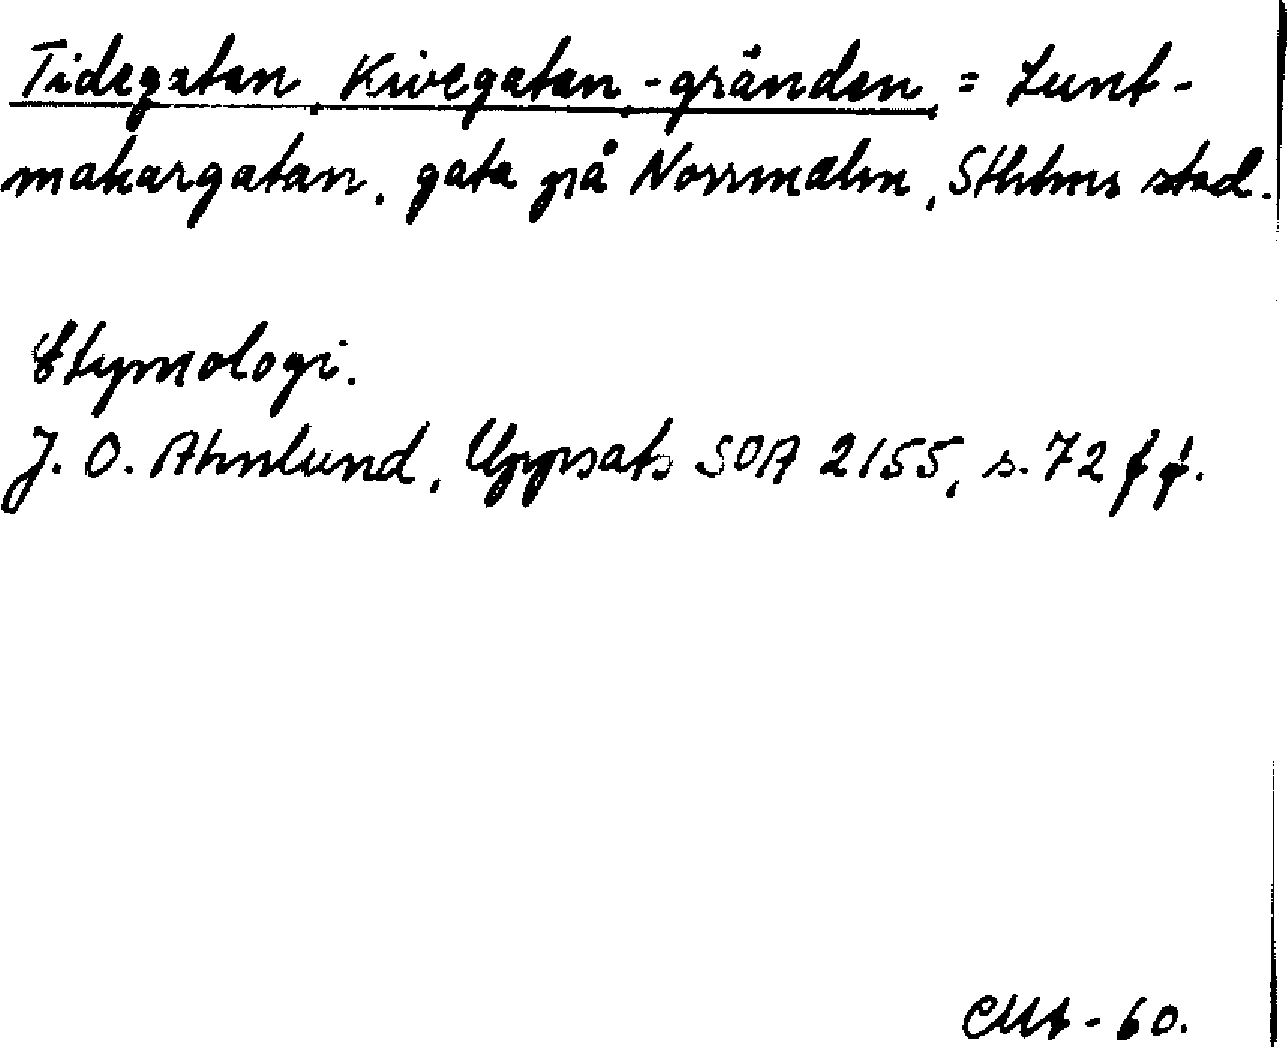 Tidegatan, Kivegatan, -gränden, = Lunt-
makargatan, gata på Norrmalm, Sthlms stad.
Etymologi.
J. O. Ahnlund, Uppsats SOA 2155, s. 72 ff.
- 60.